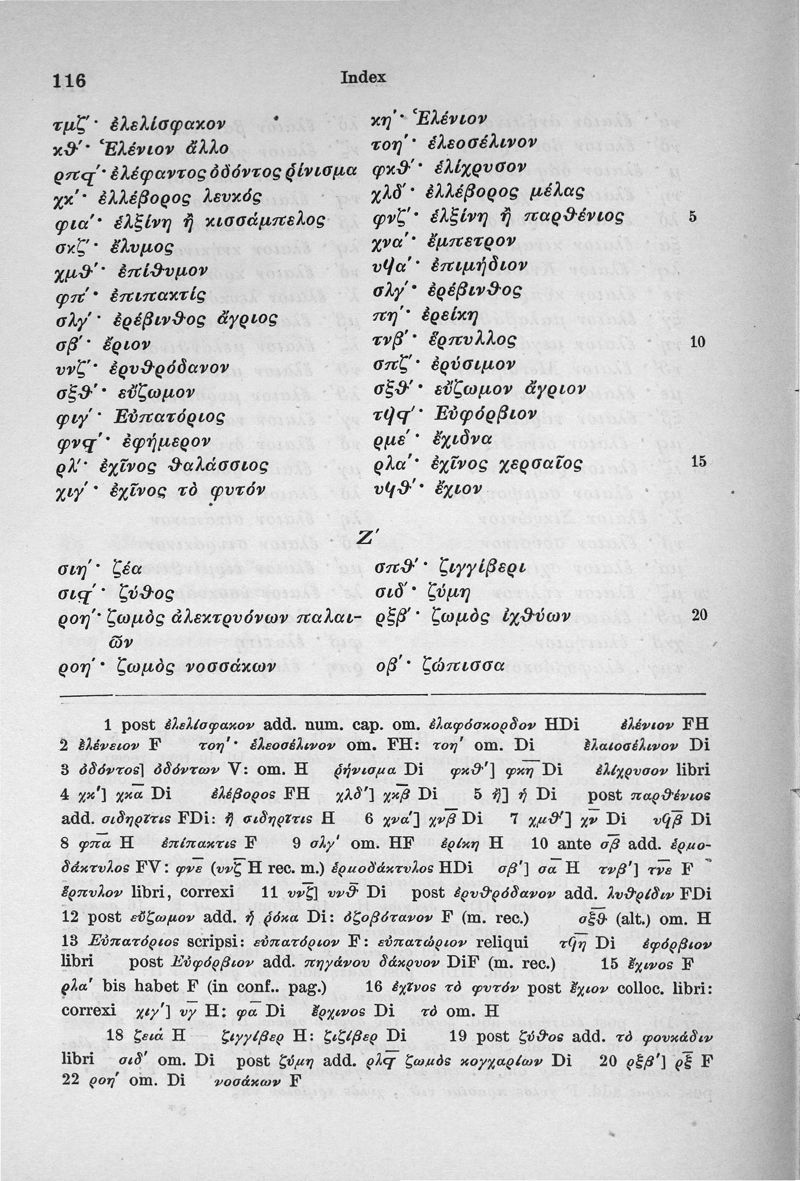 116
Index
τμζ΄· ἐλελίσφακον
κθ΄· Ἑλένιον ἄλλο
ρπϛ΄· ἐλέφαντος ὀδόντος ῥίνισμα
χκ΄· ἐλλέβορος λευκός
φια΄· ἑλξίνη ἢ κισσάμπελος
σκζ΄· ἔλυμος
χμθ΄· ἐπίθυμον
φπ΄· ἐπιπακτίς
σλγ΄· ἐρέβινθος ἄγριος
σβ΄· ἔριον
υνζ΄· ἐρυθρόδανον
σξθ΄· εὔζωμον
φιγ΄· Εὐπατόριος
φνϛ΄· ἐφήμερον
ρλ΄· ἐχῖνος θαλάσσιος
χιγ΄· ἐχῖνος τὸ φυτόν
κη΄· Ἑλένιον
τοη΄· ἑλεοσέλινον
φκθ΄· ἑλίχρυσον
χλδ΄· ἐλλέβορος μέλας
φνζ΄· ἑλξίνη ἢ παρθένιος 5
χνα΄· ἔμπετρον
υϟα΄· ἐπιμήδιον
σλγ΄· ἐρέβινθος
πη΄· ἐρείκη
τνβ΄· ἕρπυλλος 10
σπζ΄· ἐρύσιμον
σξθ΄· εὔζωμον ἄγριον
τϟϛ΄· Εὐφόρβιον
ρμε΄· ἔχιδνα
ρλα΄· ἐχῖνος χερσαῖος 15
υϟθ΄· ἔχιον
Ζ΄
σιη΄· ζέα
σιϛ΄· ζύθος
ροη΄· ζωμὸς ἀλεκτρυόνων παλαι-
ῶν
ροη΄· ζωμὸς νοσσάκων
σπθ΄· ζιγγίβερι
σιδ΄· ζύμη
ρξβ΄· ζωμὸς ἰχθύων 20
οβ΄· ζώπισσα
1 post ἐλελίσφακον add. num. cap. om. ἐλαφόσκορδον HDi ἐλένιον FH
2 ἐλένειον F τοη΄· ἐλεοσέλινον om. FH: τοη΄ om. Di ἐλαιοσέλινον Di
3 ὀδόντος] ὀδόντων V: om. H ῥήνισμα Di φκθ΄] φκη Di ἐλίχρυσον libri
4 χκ΄] χκα Di ἐλέβορος FH χλδ΄] χκβ Di 5 ἢ] ἡ Di post παρθένιος
add. σιδηρῖτις FDi: ἢ σιδηρῖτις H 6 χνα΄] χνβ Di 7 χμθ΄] χν Di υϟβ Di
8 φπα H ἐπίπακτις F 9 σλγ΄ om. HF ἐρίκη H 10 ante σβ add. ἑρμο-
δάκτυλος FV: φνε (υνζ H rec. m.) ἑρμοδάκτυλος HDi σβ΄] σα H τνβ΄] τνε F
ἕρπυλον libri, correxi 11 υνζ] υνθ Di post ἐρυθρόδανον add. λυθρίδιν FDi
12 post εὔζωμον add. ἢ ῥόκα Di: ὀζοβότανον F (m. rec.) σξθ (alt.) om. H
13 Εὐπατόριος scripsi: εὐπατόριον F: εὐπατώριον reliqui τϟη Di ἐφόρβιον
libri post Εὐφόρβιον add. πηγάνου δάκρυον DiF (m. rec.) 15 ἔχινος F
ρλα΄ bis habet F (in conf.. pag.) 16 ἐχῖνος τὸ φυτόν post ἔχιον colloc. libri:
correxi χιγ΄] υγ H: φα Di ἔρχινος Di τὸ om. H
18 ζειά H ζιγγίβερ H: ζιζίβερ Di 19 post ζύθος add. τὸ φουκάδιν
libri σιδ΄ om. Di post ζύμη add. ρλϛ ζωμὸς κογχαρίων Di 20 ρξβ΄] ρξ F
22 ροη΄ om. Di νοσάκων F